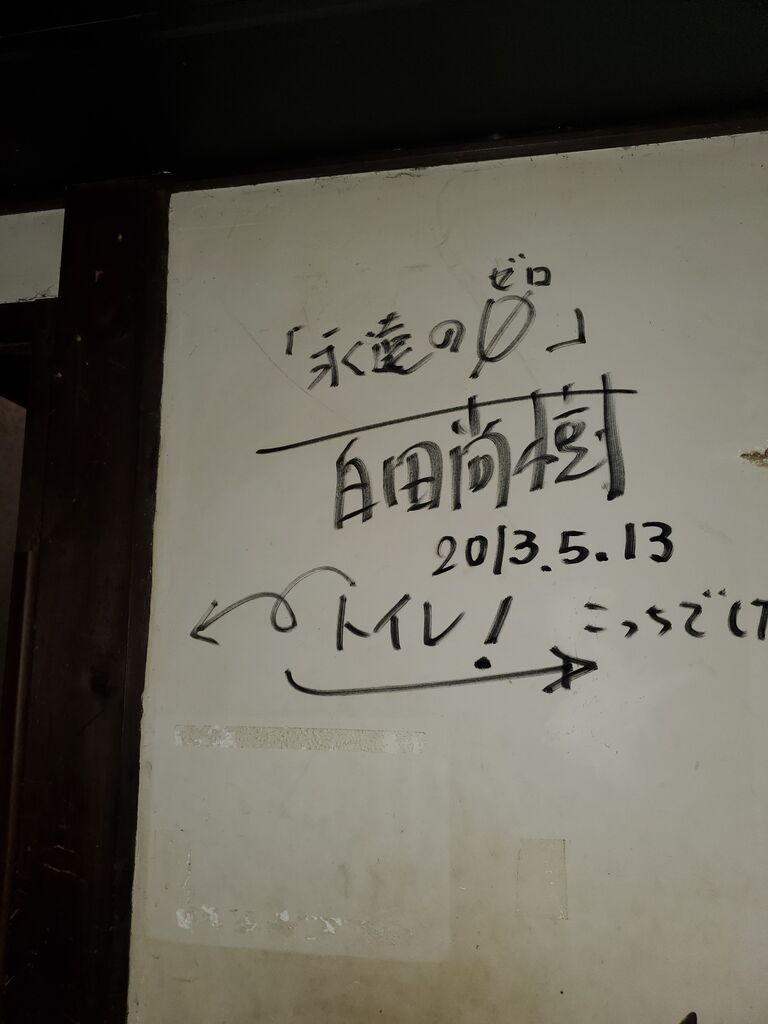 ゼロ
「永遠の0」
百田尚樹
2013.5.13
トイレ! こっちで